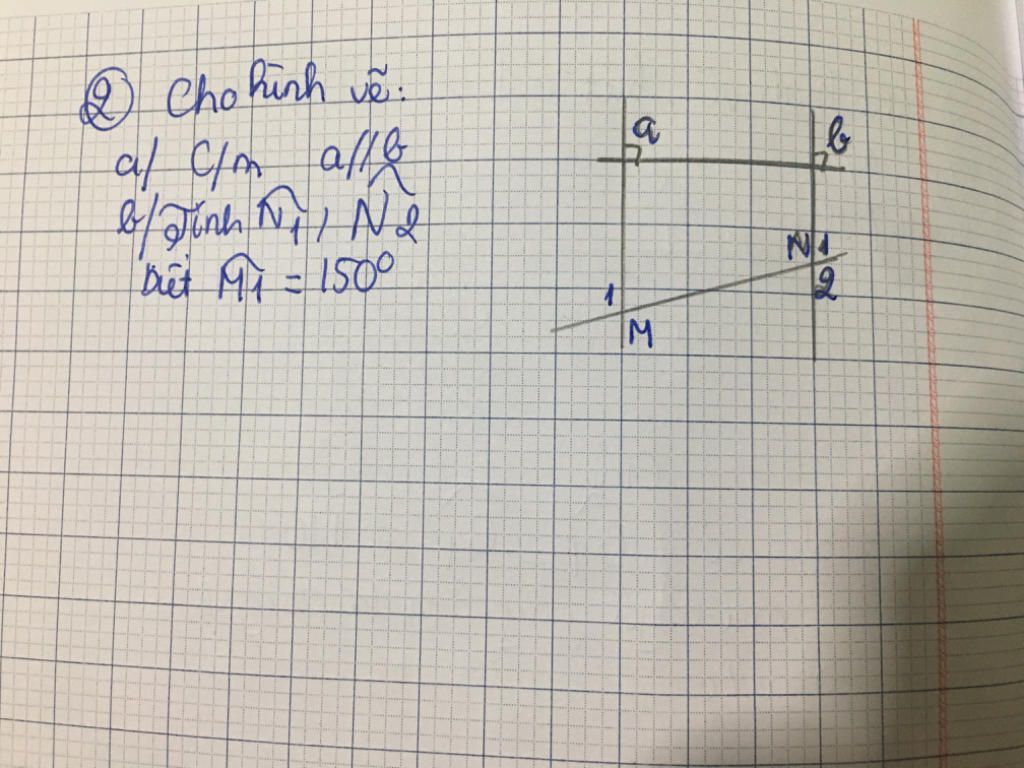 ② Cho hình vẽ:
a/ C/m a//b
b/ Tính N̂1, N̂2
biết M̂1 = 150⁰
a
b
N 1
2
1
M